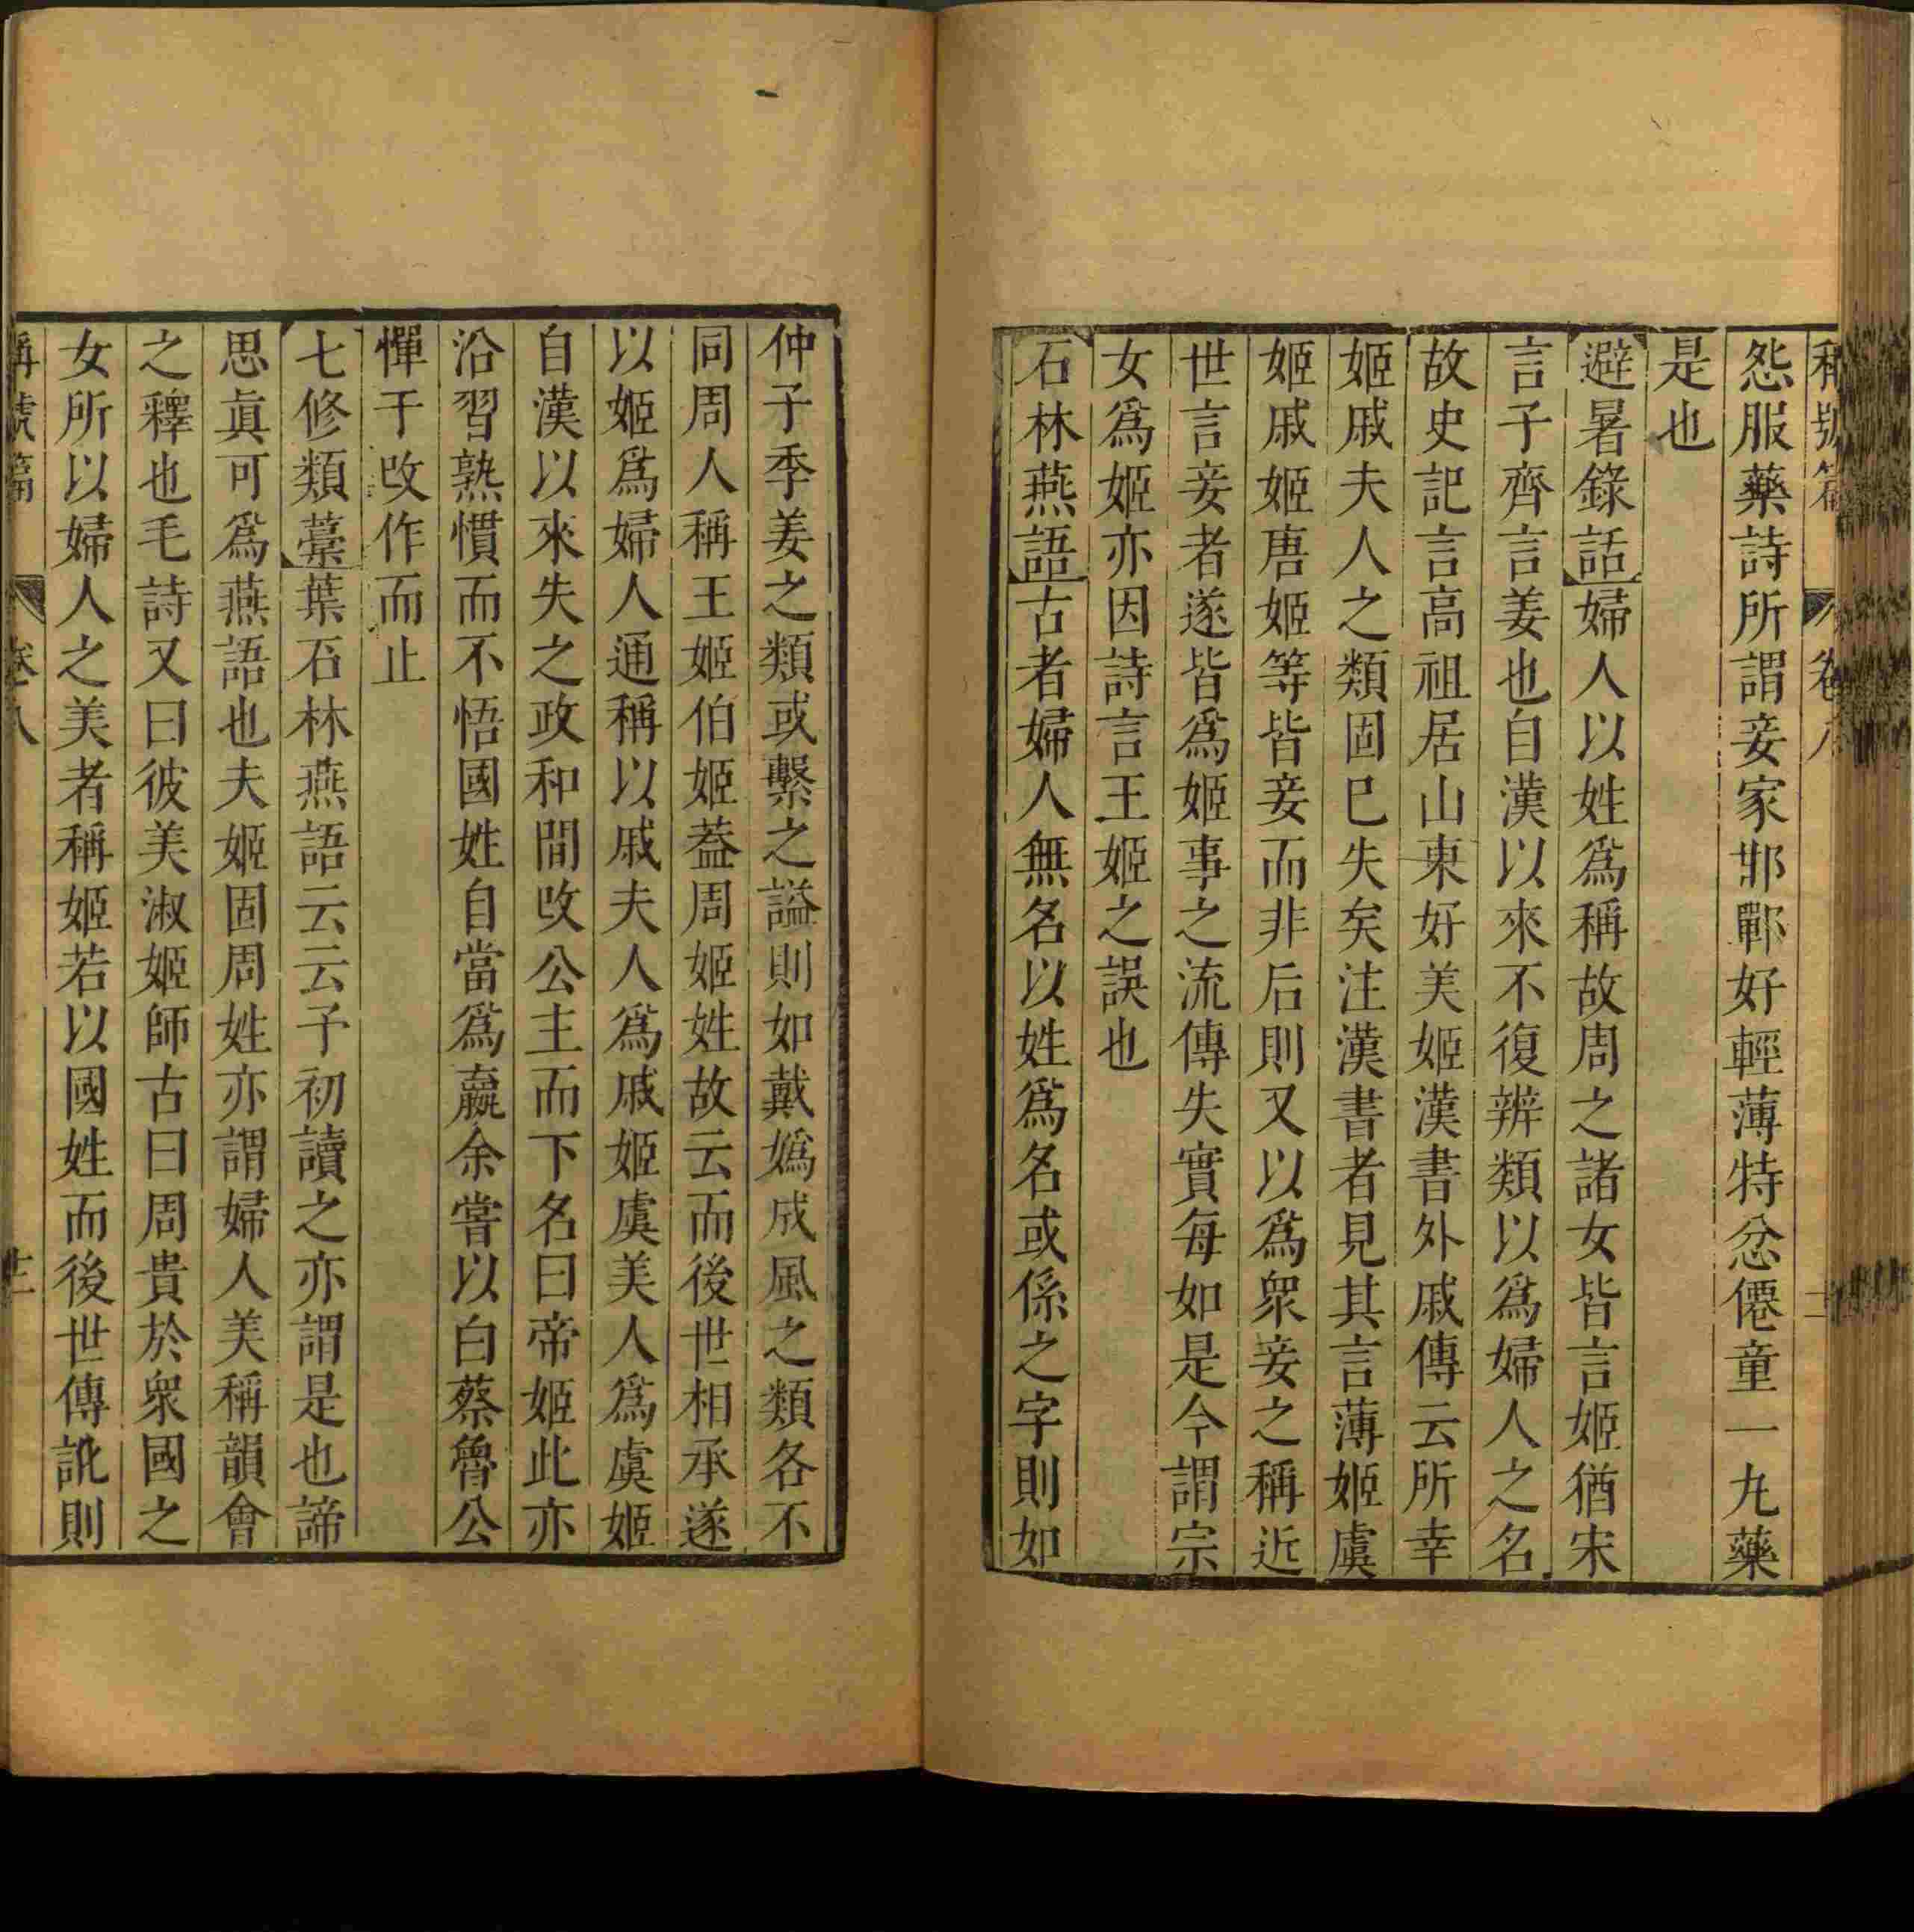 稱號篇 卷八
怨服藥詩所謂妾家邯鄲好輕薄特忿僊童一九藥
是也
避暑錄話婦人以姓爲稱故周之諸女皆言姬猶宋
言子齊言姜也自漢以來不復辨類以爲婦人之名
故史記言高祖居山東好美姬漢書外戚傳云所幸
姬戚夫人之類固已失矣注漢書者見其言薄姬虞
姬戚姬唐姬等皆妾而非后則又以爲衆妾之稱近
世言妾者遂皆爲姬事之流傳失實每如是今謂宗
女爲姬亦因詩言王姬之誤也
石林燕語古者婦人無名以姓爲名或係之字則如
仲子季姜之類或繫之謚則如戴嬀成風之類各不
同周人稱王姬伯姬葢周姬姓故云而後世相承遂
以姬爲婦人通稱以戚夫人爲戚姬虞美人爲虞姬
自漢以來失之政和間改公主而下名曰帝姬此亦
沿習熟慣而不悟國姓自當爲嬴余嘗以白蔡魯公
憚于改作而止
七修類藁葉石林燕語云云予初讀之亦謂是也諦
思眞可爲燕語也夫姬固周姓亦謂婦人美稱韻會
之釋也毛詩又曰彼美淑姬師古曰周貴於衆國之
女所以婦人之美者稱姬若以國姓而後世傳訛則
稱號篇 卷八